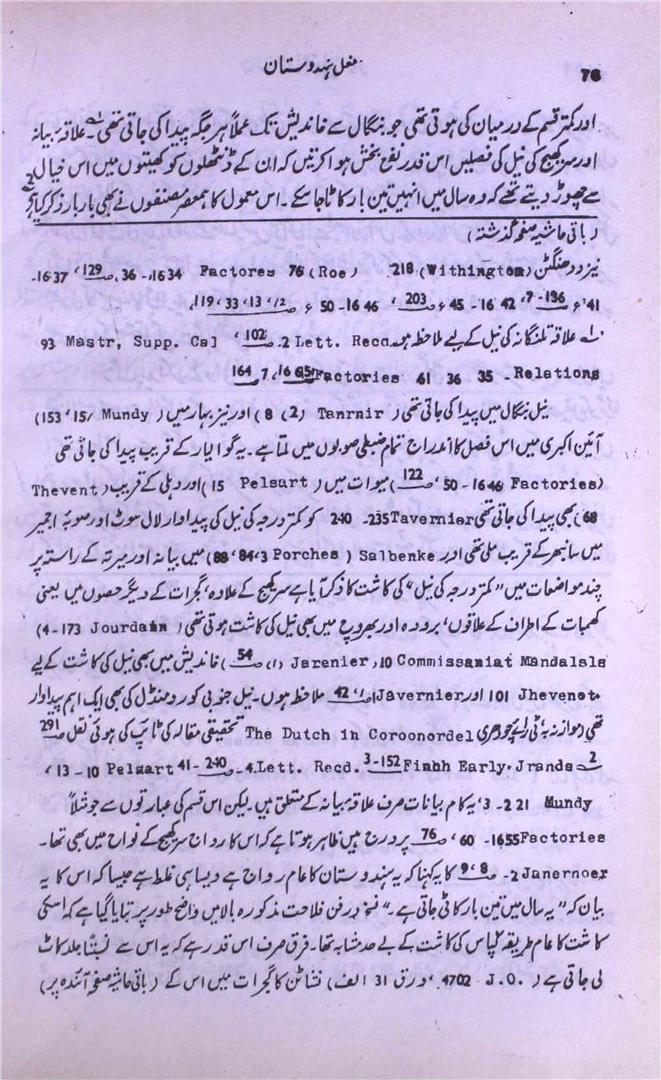 مغل ہندوستان
76
اور کمتر قسم کے درمیان کی ہوتی تھی جو بنگال سے خاندیش تک عملاً ہر جگہ پیدا کی جاتی تھی۔ علاقہ بیانہ
اور سرکھیج کی نیل کی فصلیں اس قدر نفع بخش ہوا کرتیں کہ ان کے ڈنٹھلوں کو کھیتوں میں اس خیال
سے چھوڑ دیتے تھے کہ وہ سال میں انہیں تین بار کاٹا جا سکے۔ اس معمول کا ہمعصر مصنفوں نے بھی بار بار ذکر کیا ہے
(باقی حاشیہ صفحہ گذشتہ)
نیز ودھنگٹن (Withington) 218، (Roe) 76 Factores 1634-36، ص129، 1637-
41ء، ص136-7، 1642-45ء، ص203، 1646-50ء ص12، 13، 33، 119،
علاقہ تلنگانہ کی نیل کے لیے ملاحظہ ہو۔ Lett. Recd 2. ص102، Mastr, Supp. Cal 93
Relations- 35 36 61 Factories 1665، 7، 164
نیل بنگال میں پیدا کی جاتی تھی (Tanrnir (2) 8) اور نیز بہار میں (Mundy 15، 153)
آئین اکبری میں اس فصل کا اندراج تمام ضبطی صوبوں میں تھا ہے۔ یہ گوالیار کے قریب پیدا کی جاتی تھی
(Factories 1646-50، ص122) میوات میں (Pelsart 15) اور دہلی کے قریب (Thevent
68) بھی پیدا کی جاتی تھی Tavernier 235-240 کو کمتر درجہ کی نیل کی پیداوار لال سوٹ اور صوبۂ اجمیر
میں سانبھر کے قریب ملی تھی اور Salbenke (Porches 3، 84، 88) میں بیانہ اور میرتہ کے راستہ پر
چند مواضعات میں "کمتر درجہ کی نیل" کی کاشت کا ذکر آیا ہے سرکھیج کے علاوہ، گجرات کے دیگر حصوں میں یعنی
کھمبات کے اطراف کے علاقوں، برودہ اور بھروچ میں بھی نیل کی کاشت ہوتی تھی (Jourdain 173-4)
Commissaniat Mandalsls 10، Jarenier (1) ص54) خاندیش میں بھی نیل کی کاشت کے لیے
Jhevenet 101 اور Javernier 1، ص42 ملاحظہ ہوں۔ نیل جنوبی کورومنڈل کی بھی ایک اہم پیداوار
تھی (موازنہ بہ ٹی رائے چودھری The Dutch in Coroonordel تحقیقی مقالہ کی ٹائپ کی ہوئی نقل ص291
2 Finhh Early Jrands ص152-3 Lett. Recd. 4. ص240-41 Pelsart 10-13،
Mundy 221-3، یہ کام بیانات صرف علاقہ بیانہ کے متعلق ہیں۔ لیکن اس قسم کی عبارتوں سے جو مثلاً
Factories 1655-60، ص76 پر درج ہیں ظاہر ہوتا ہے کہ اس کا رواج سرکھیج کے نواح میں بھی تھا۔
Janernoer 2-ص8، 9 کا یہ کہنا کہ یہ ہندوستان کا عام رواج ہے ویسا ہی غلط ہے جیسا کہ اس کا یہ
بیان کہ "یہ سال میں تین بار کاٹی جاتی ہے۔" نسخہ درفن فلاحت مذکورہ بالا میں واضح طور پر بتایا گیا ہے کہ اسکی
کاشت کا عام طریقہ کپاس کی کاشت کے بے حد مشابہ تھا۔ فرق صرف اس قدر ہے کہ یہ اس سے نسبتاً جلد کاٹ
لی جاتی ہے (J.O. 4702، ورق 31 الف) نشاٹن کا گجرات میں اس کے (باقی حاشیہ صفحہ آئندہ پر)